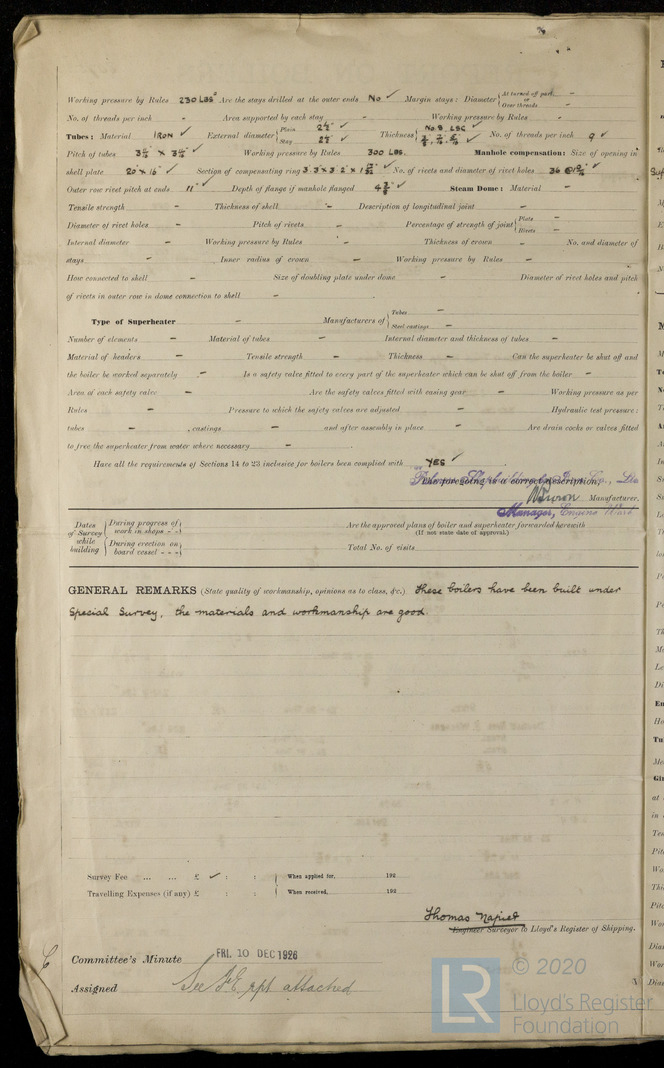 Working pressure by Rules 230 LBS Are the stays drilled at the outer ends No ✓ Margin stays: Diameter { At turned off part, - or Over threads -
No. of threads per inch - Area supported by each stay - Working pressure by Rules -
Tubes: Material IRON ✓ External diameter { Plain 2½" ✓ Stay 2½" ✓ Thickness { No. 8 LSG ✓ No. of threads per inch 9 ✓
Pitch of tubes ✓ Working pressure by Rules 300 LBS. Manhole compensation: Size of opening in
shell plate 20" x 16" ✓ Section of compensating ring ✓ No. of rivets and diameter of rivet holes 36 ✓
Outer row rivet pitch at ends 11" ✓ Depth of flange if manhole flanged ✓ Steam Dome: Material -
Tensile strength - Thickness of shell - Description of longitudinal joint -
Diameter of rivet holes - Pitch of rivets - Percentage of strength of joint { Plate - Rivets -
Internal diameter - Working pressure by Rules - Thickness of crown - No. and diameter of
stays - Inner radius of crown - Working pressure by Rules -
How connected to shell - Size of doubling plate under dome - Diameter of rivet holes and pitch
of rivets in outer row in dome connection to shell -
Type of Superheater - Manufacturers of { Tubes - Steel castings -
Number of elements - Material of tubes - Internal diameter and thickness of tubes -
Material of headers - Tensile strength - Thickness - Can the superheater be shut off and
the boiler be worked separately - Is a safety valve fitted to every part of the superheater which can be shut off from the boiler -
Area of each safety valve - Are the safety valves fitted with easing gear - Working pressure as per
Rules - Pressure to which the safety valves are adjusted - Hydraulic test pressure:
tubes - , castings - and after assembly in place - Are drain cocks or valves fitted
to free the superheater from water where necessary -
Have all the requirements of Sections 14 to 23 inclusive for boilers been complied with YES ✓
The foregoing is a correct description,
Manufacturer.
Manager, Engine
Dates of Survey while building { During progress of work in shops - - } { During erection on board vessel - - - }
Are the approved plans of boiler and superheater forwarded herewith
(If not state date of approval.)
Total No. of visits
GENERAL REMARKS (State quality of workmanship, opinions as to class, &c.) These boilers have been built under
Special Survey, the materials and workmanship are good.
Survey Fee ... ... £ ✓ : : { When applied for, 192
Travelling Expenses (if any) £ : : { When received, 192
Thomas Napier
Engineer Surveyor to Lloyd's Register of Shipping.
Committee's Minute FRI. 10 DEC 1926
Assigned See F.E. rpt. attached
© 2020
LR
Lloyd's Register
Foundation